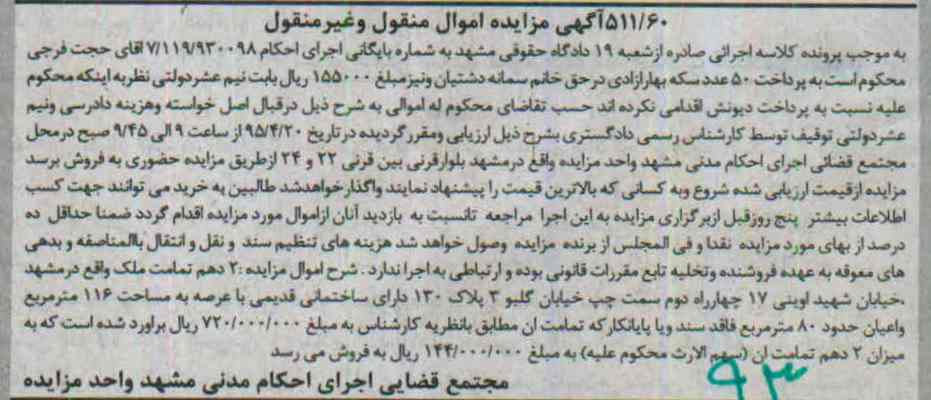 ۵۱۱/۶۰آگهی مزایده اموال منقول وغیرمنقول
به موجب پرونده کلاسه اجرائی صادره ازشعبه ۱۹ دادگاه حقوقی مشهد به شماره بایگانی اجرای احکام ۷/۱۱۹/۹۳۰۰۹۸ آقای حجت فرجی
محکوم است به پرداخت ۵۰ عدد سکه بهارازادی درحق خانم سمانه دشتیان ونیزمبلغ ۱۵۵۰۰۰ ریال بابت نیم عشردولتی نظربه اینکه محکوم
علیه نسبت به پرداخت دیونش اقدامی نکرده اند حسب تقاضای محکوم له اموالی به شرح ذیل درقبال اصل خواسته وهزینه دادرسی ونیم
عشردولتی توقیف توسط کارشناس رسمی دادگستری بشرح ذیل ارزیابی ومقررگردیده درتاریخ ۹۵/۴/۲۰ از ساعت ۹ الی ۹/۴۵ صبح درمحل
مجتمع قضائی اجرای احکام مدنی مشهد واحد مزایده واقع درمشهد بلوارقرنی بین قرنی ۲۲ و ۲۴ ازطریق مزایده حضوری به فروش برسد
مزایده ازقیمت ارزیابی شده شروع وبه کسانی که بالاترین قیمت را پیشنهاد نمایند واگذارخواهدشد طالبین به خرید می توانند جهت کسب
اطلاعات بیشتر پنج روزقبل ازبرگزاری مزایده به این اجرا مراجعه تانسبت به بازدید آنان ازاموال مورد مزایده اقدام گردد ضمنا حداقل ده
درصد از بهای مورد مزایده نقدا و فی المجلس از برنده مزایده وصول خواهد شد هزینه های تنظیم سند و نقل و انتقال باالمناصفه و بدهی
های معوقه به عهده فروشنده وتخلیه تابع مقررات قانونی بوده و ارتباطی به اجرا ندارد . شرح اموال مزایده :۲ دهم تمامت ملک واقع درمشهد
،خیابان شهید اوینی ۱۷ چهارراه دوم سمت چپ خیابان گلبو ۳ پلاک ۱۳۰ دارای ساختمانی قدیمی با عرصه به مساحت ۱۱۶ مترمربع
واعیان حدود ۸۰ مترمربع فاقد سند ویا پایانکارکه تمامت ان مطابق بانظریه کارشناس به مبلغ ۷۲۰/۰۰۰/۰۰۰ ریال براورد شده است که به
میزان ۲ دهم تمامت ان (سهم الارث محکوم علیه) به مبلغ ۱۴۴/۰۰۰/۰۰۰ ریال به فروش می رسد
مجتمع قضایی اجرای احکام مدنی مشهد واحد مزایده